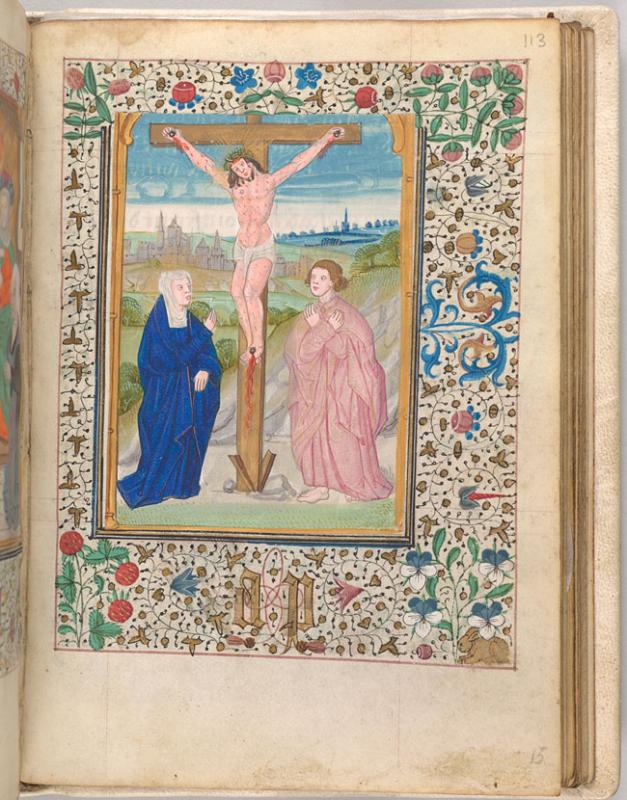 113
15